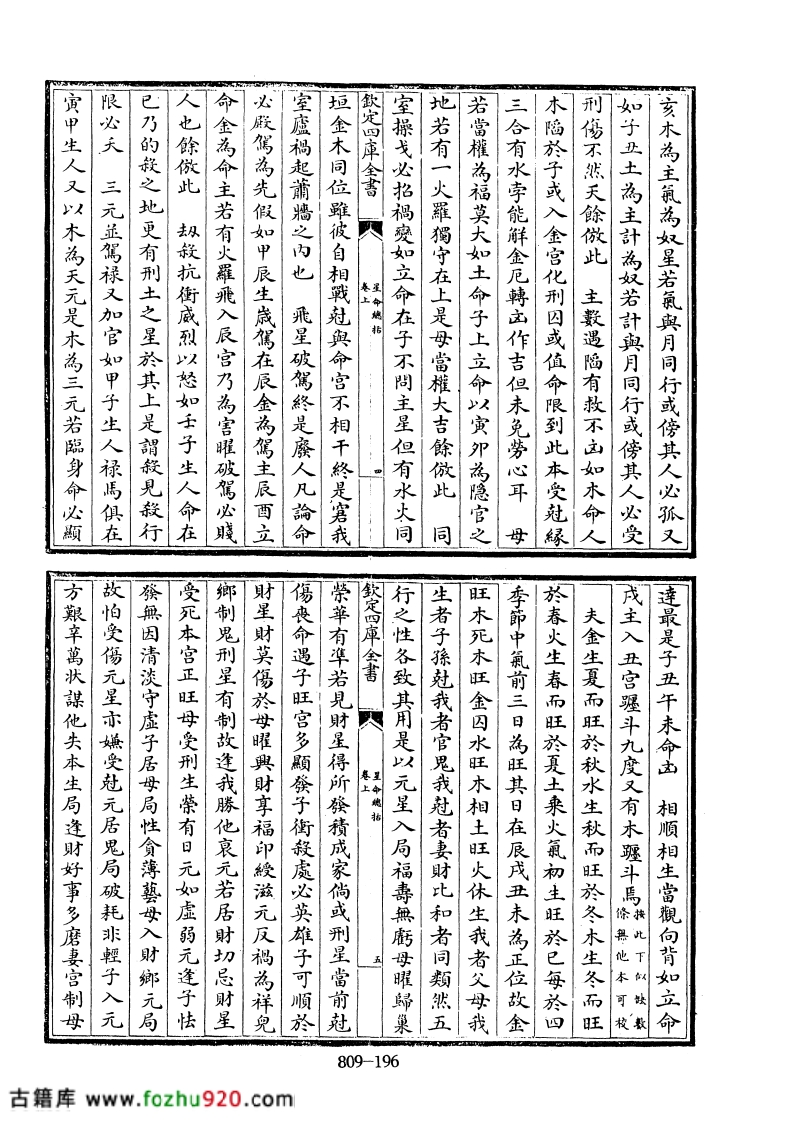 亥木為主氣為奴星若氣與月同行或傍其人必孤又
如子丑土為主計為奴若計與月同行或傍其人必受
刑傷不然夭餘倣此　主數遇䧟有救不凶如木命人
木䧟於子或入金宮化刑囚或值命限到此本受尅縁
三合有水孛能解金厄轉凶作吉但未免勞心耳　母
若當權為福莫大如土命子上立命以寅夘為隠官之
地若有一火羅獨守在上是母當權大吉餘倣此　同
室操戈必招禍變如立命在子不問主星但有水火同
欽定四庫全書
星命總括
卷上
四
垣金木同位雖彼自相戰尅與命宮不相干終是窘我
室廬禍起蕭牆之内也　飛星破駕終是廢人凡論命
必殿駕為先假如甲辰生嵗駕在辰金為駕主辰酉立
命金為命主若有火羅飛入辰宮乃為害曜破駕必賤
人也餘倣此　刼殺抗衝威烈以怒如壬子生人命在
巳乃的殺之地更有刑土之星於其上是謂殺見殺行
限必夭　三元並駕禄又加官如甲子生人禄馬俱在
寅甲生人又以木為天元是木為三元若臨身命必顯
達最是子丑午未命凶　相順相生當觀向背如立命
戌主入丑宮躔斗九度又有木躔斗馬按此下似缺數條無他本可校
夫金生夏而旺於秋水生秋而旺於冬木生冬而旺
於春火生春而旺於夏土乘火氣初生旺於巳每於四
季節中氣前三日為旺其日在辰戌丑未為正位故金
旺木死木旺金囚水旺木相土旺火休生我者父母我
生者子孫尅我者官鬼我尅者妻財比和者同類然五
行之性各致其用是以元星入局福壽無虧母曜歸巢
欽定四庫全書
星命總括
卷上
五
榮華有凖若見財星得所發積成家倘或刑星當前尅
傷喪命遇子旺宮多顯發子衝殺處必英雄子可順於
財星財莫傷於母曜興財享福印綬滋元反禍為祥兒
鄉制鬼刑星有制故逢我勝他哀元若居財切忌財星
受死本宮正旺母受刑生榮有日元如虛弱元逢子怯
發無因清淡守虛子居母局性貪薄藝母入財鄉元局
故怕受傷元星亦嫌受尅元居鬼局破耗非輕子入元
方艱辛萬狀謀他失本生局逢財好事多磨妻宮制母
809-196
古籍库 www.fozhu920.com